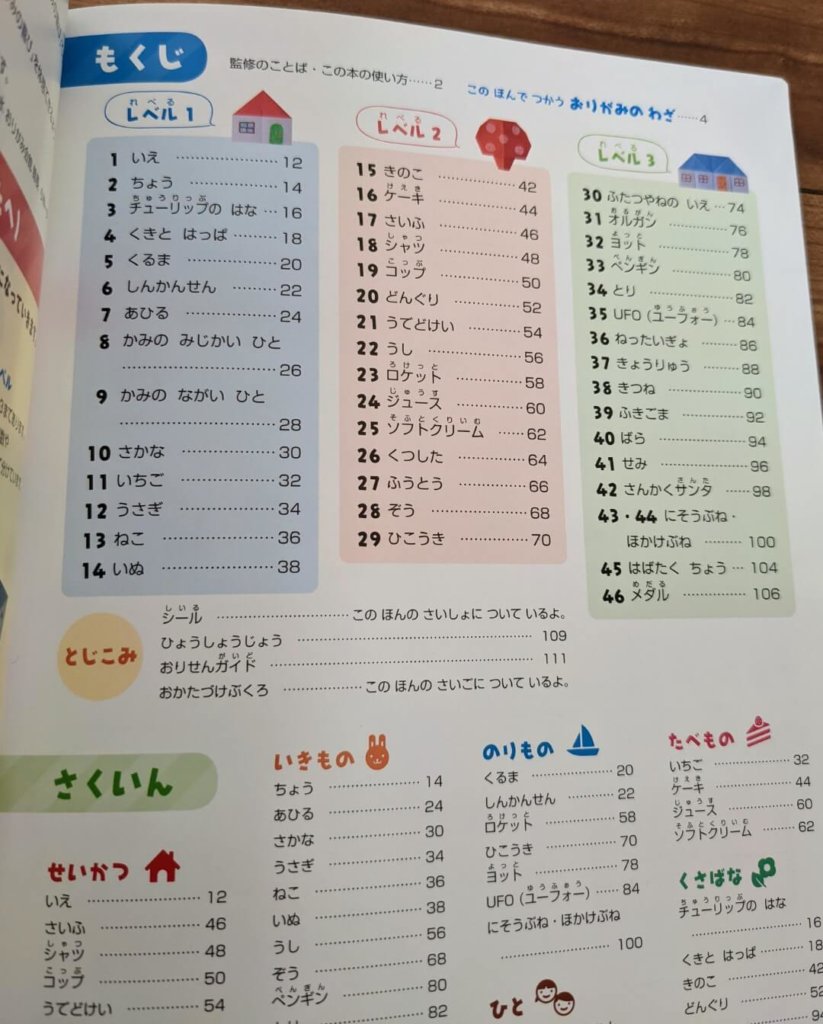 もくじ
監修のことば・この本の使い方……2
この ほんで つかう おりがみの わざ……4
れべる
レベル 1
1 いえ ……………… 12
2 ちょう ……………… 14
ちゅうりっぷ
3 チューリップの はな … 16
4 くきと はっぱ ……… 18
5 くるま ……………… 20
6 しんかんせん ……… 22
7 あひる ……………… 24
8 かみの みじかい ひと
……………… 26
9 かみの ながい ひと
……………… 28
10 さかな ……………… 30
11 いちご ……………… 32
12 うさぎ ……………… 34
13 ねこ ……………… 36
14 いぬ ……………… 38
れべる
レベル 2
15 きのこ ……………… 42
けえき
16 ケーキ ……………… 44
17 さいふ ……………… 46
しゃつ
18 シャツ ……………… 48
こっぷ
19 コップ ……………… 50
20 どんぐり ……………… 52
21 うでどけい ………… 54
22 うし ……………… 56
ろけっと
23 ロケット ……………… 58
じゅうす
24 ジュース ……………… 60
そふとくりいむ
25 ソフトクリーム …… 62
26 くつした ……………… 64
27 ふうとう ……………… 66
28 ぞう ……………… 68
29 ひこうき ……………… 70
れべる
レベル 3
30 ふたつやねの いえ … 74
おるがん
31 オルガン ……………… 76
よっと
32 ヨット ……………… 78
ぺんぎん
33 ペンギン ……………… 80
34 とり ……………… 82
ゆうふぉう
35 UFO（ユーフォー）… 84
36 ねったいぎょ ……… 86
37 きょうりゅう ……… 88
38 きつね ……………… 90
39 ふきごま ……………… 92
40 ばら ……………… 94
41 せみ ……………… 96
さんた
42 さんかくサンタ …… 98
43・44 にそうぶね・
ほかけぶね ……… 100
45 はばたく ちょう … 104
めだる
46 メダル ……………… 106
とじこみ
しいる
シール ……………… この ほんの さいしょに ついて いるよ。
ひょうしょうじょう ……………… 109
がいど
おりせんガイド ……………… 111
おかたづけぶくろ ……………… この ほんの さいごに ついて いるよ。
さくいん
せいかつ
いえ ……………… 12
さいふ ……………… 46
しゃつ
シャツ ……………… 48
こっぷ
コップ ……………… 50
うでどけい ……………… 54
いきもの
ちょう ……………… 14
あひる ……………… 24
さかな ……………… 30
うさぎ ……………… 34
ねこ ……………… 36
いぬ ……………… 38
うし ……………… 56
ぞう ……………… 68
ぺんぎん
ペンギン ……………… 80
とり ……………… 82
のりもの
くるま ……………… 20
しんかんせん ……… 22
ろけっと
ロケット ……………… 58
ひこうき ……………… 70
よっと
ヨット ……………… 78
ゆうふぉう
UFO（ユーフォー）…… 84
にそうぶね・ほかけぶね
……………… 100
ひと
たべもの
いちご ……………… 32
けえき
ケーキ ……………… 44
じゅうす
ジュース ……………… 60
そふとくりいむ
ソフトクリーム …… 62
くさばな
ちゅうりっぷ
チューリップの はな
……………… 16
くきと はっぱ ……… 18
きのこ ……………… 42
どんぐり ……………… 52
94